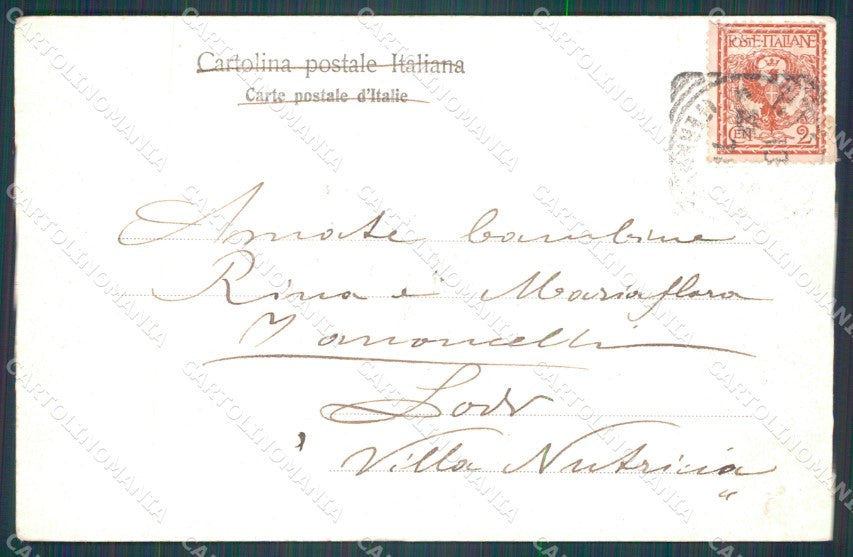 Cartolina postale Italiana
Carte postale d'Italie
POSTE·ITALIANE
CEN 2
Amate bambine
Rina e Mariaflora
Zanoncelli
Lodi
Villa Nutricia
CARTOLINOMANIA